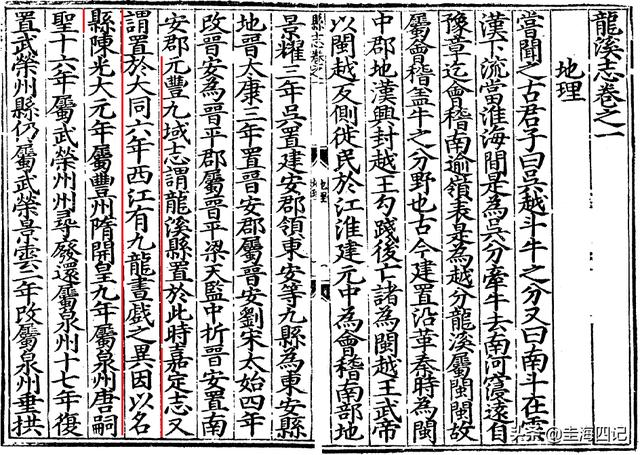 龍溪志卷之一
地理
嘗聞之古君子曰吳越斗牛之分又曰南斗在雲
漢下流當淮海間是為吳分牽牛去南河寖遠自
豫章迄會稽南逾嶺表是為越分龍溪屬閩閩故
屬會稽盖牛之分野也古今建置沿革秦時為閩
中郡地漢興封越王勾踐後亡諸為閩越王武帝
以閩越反側徙民於江淮建元中為會稽南部地
縣志卷之一
地理
景耀三年吳置建安郡領東安等九縣為東安縣
地晉太康三年置晉安郡屬晉安劉宋太始四年
改晉安為晉平郡屬晉平梁天監中析晉安置南
安郡元豐九域志謂龍溪縣置於此時嘉定志又
謂置於大同六年西江有九龍晝戲之異因以名
縣陳光大元年屬豐州隋開皇九年屬泉州唐嗣
聖十六年屬武榮州州尋廢還屬泉州十七年復
置武榮州縣仍屬武榮景雲二年改屬泉州垂拱
头条 @圭海四记